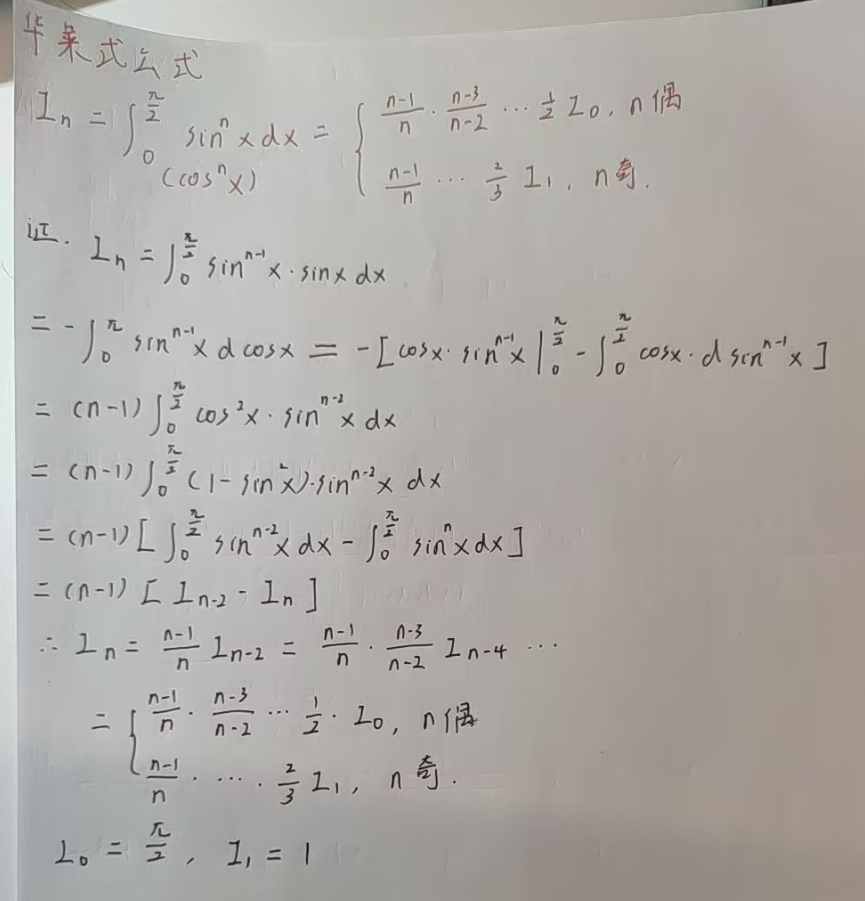 华莱式公式
Iₙ = ∫₀^(π/2) sinⁿx dx = { (n-1)/n · (n-3)/(n-2) ⋯ 1/2 I₀, n偶
(cosⁿx) (n-1)/n ⋯ 2/3 I₁, n奇.
证. Iₙ = ∫₀^(π/2) sinⁿ⁻¹x · sinx dx
= -∫₀^π sinⁿ⁻¹x d cosx = -[cosx · sinⁿ⁻¹x |₀^(π/2) - ∫₀^(π/2) cosx · d sinⁿ⁻¹x]
= (n-1) ∫₀^(π/2) cos²x · sinⁿ⁻²x dx
= (n-1) ∫₀^(π/2) (1 - sin²x) · sinⁿ⁻²x dx
= (n-1) [∫₀^(π/2) sinⁿ⁻²x dx - ∫₀^(π/2) sinⁿx dx]
= (n-1) [Iₙ₋₂ - Iₙ]
∴ Iₙ = (n-1)/n Iₙ₋₂ = (n-1)/n · (n-3)/(n-2) Iₙ₋₄ ⋯
= { (n-1)/n · (n-3)/(n-2) ⋯ 1/2 · I₀, n偶
(n-1)/n · ⋯ · 2/3 I₁, n奇.
I₀ = π/2, I₁ = 1